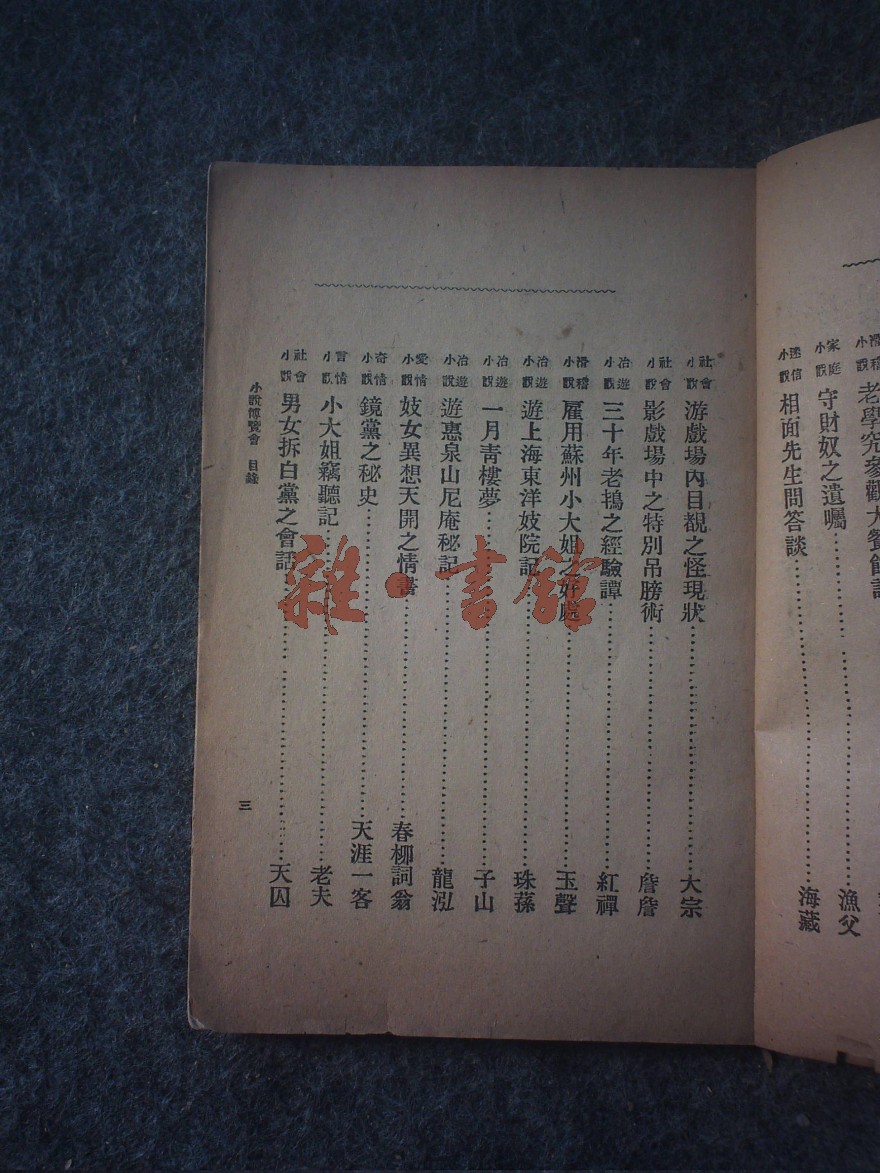 滑稽小說 老學究參觀大餐館記
家庭小說 守財奴之遺囑 漁父
迷信小說 相面先生問答談 海藏
社會小說 游戲場內目覩之怪現狀 大宗
社會小說 影戲場中之特別吊膀術 詹詹
冶遊小說 三十年老鴇之經驗譚 紅禪
滑稽小說 雇用蘇州小大姐之好處 玉聲
冶遊小說 遊上海東洋妓院記 珠蓀
冶遊小說 一月青樓夢 子山
冶遊小說 遊惠泉山尼庵秘記 龍泓
愛情小說 妓女異想天開之情書 春柳詞翁
奇情小說 鏡黨之秘史 天涯一客
言情小說 小大姐竊聽記 老夫
社會小說 男女拆白黨之會話 天囚
小說博覽會 目錄 三
雜·書館